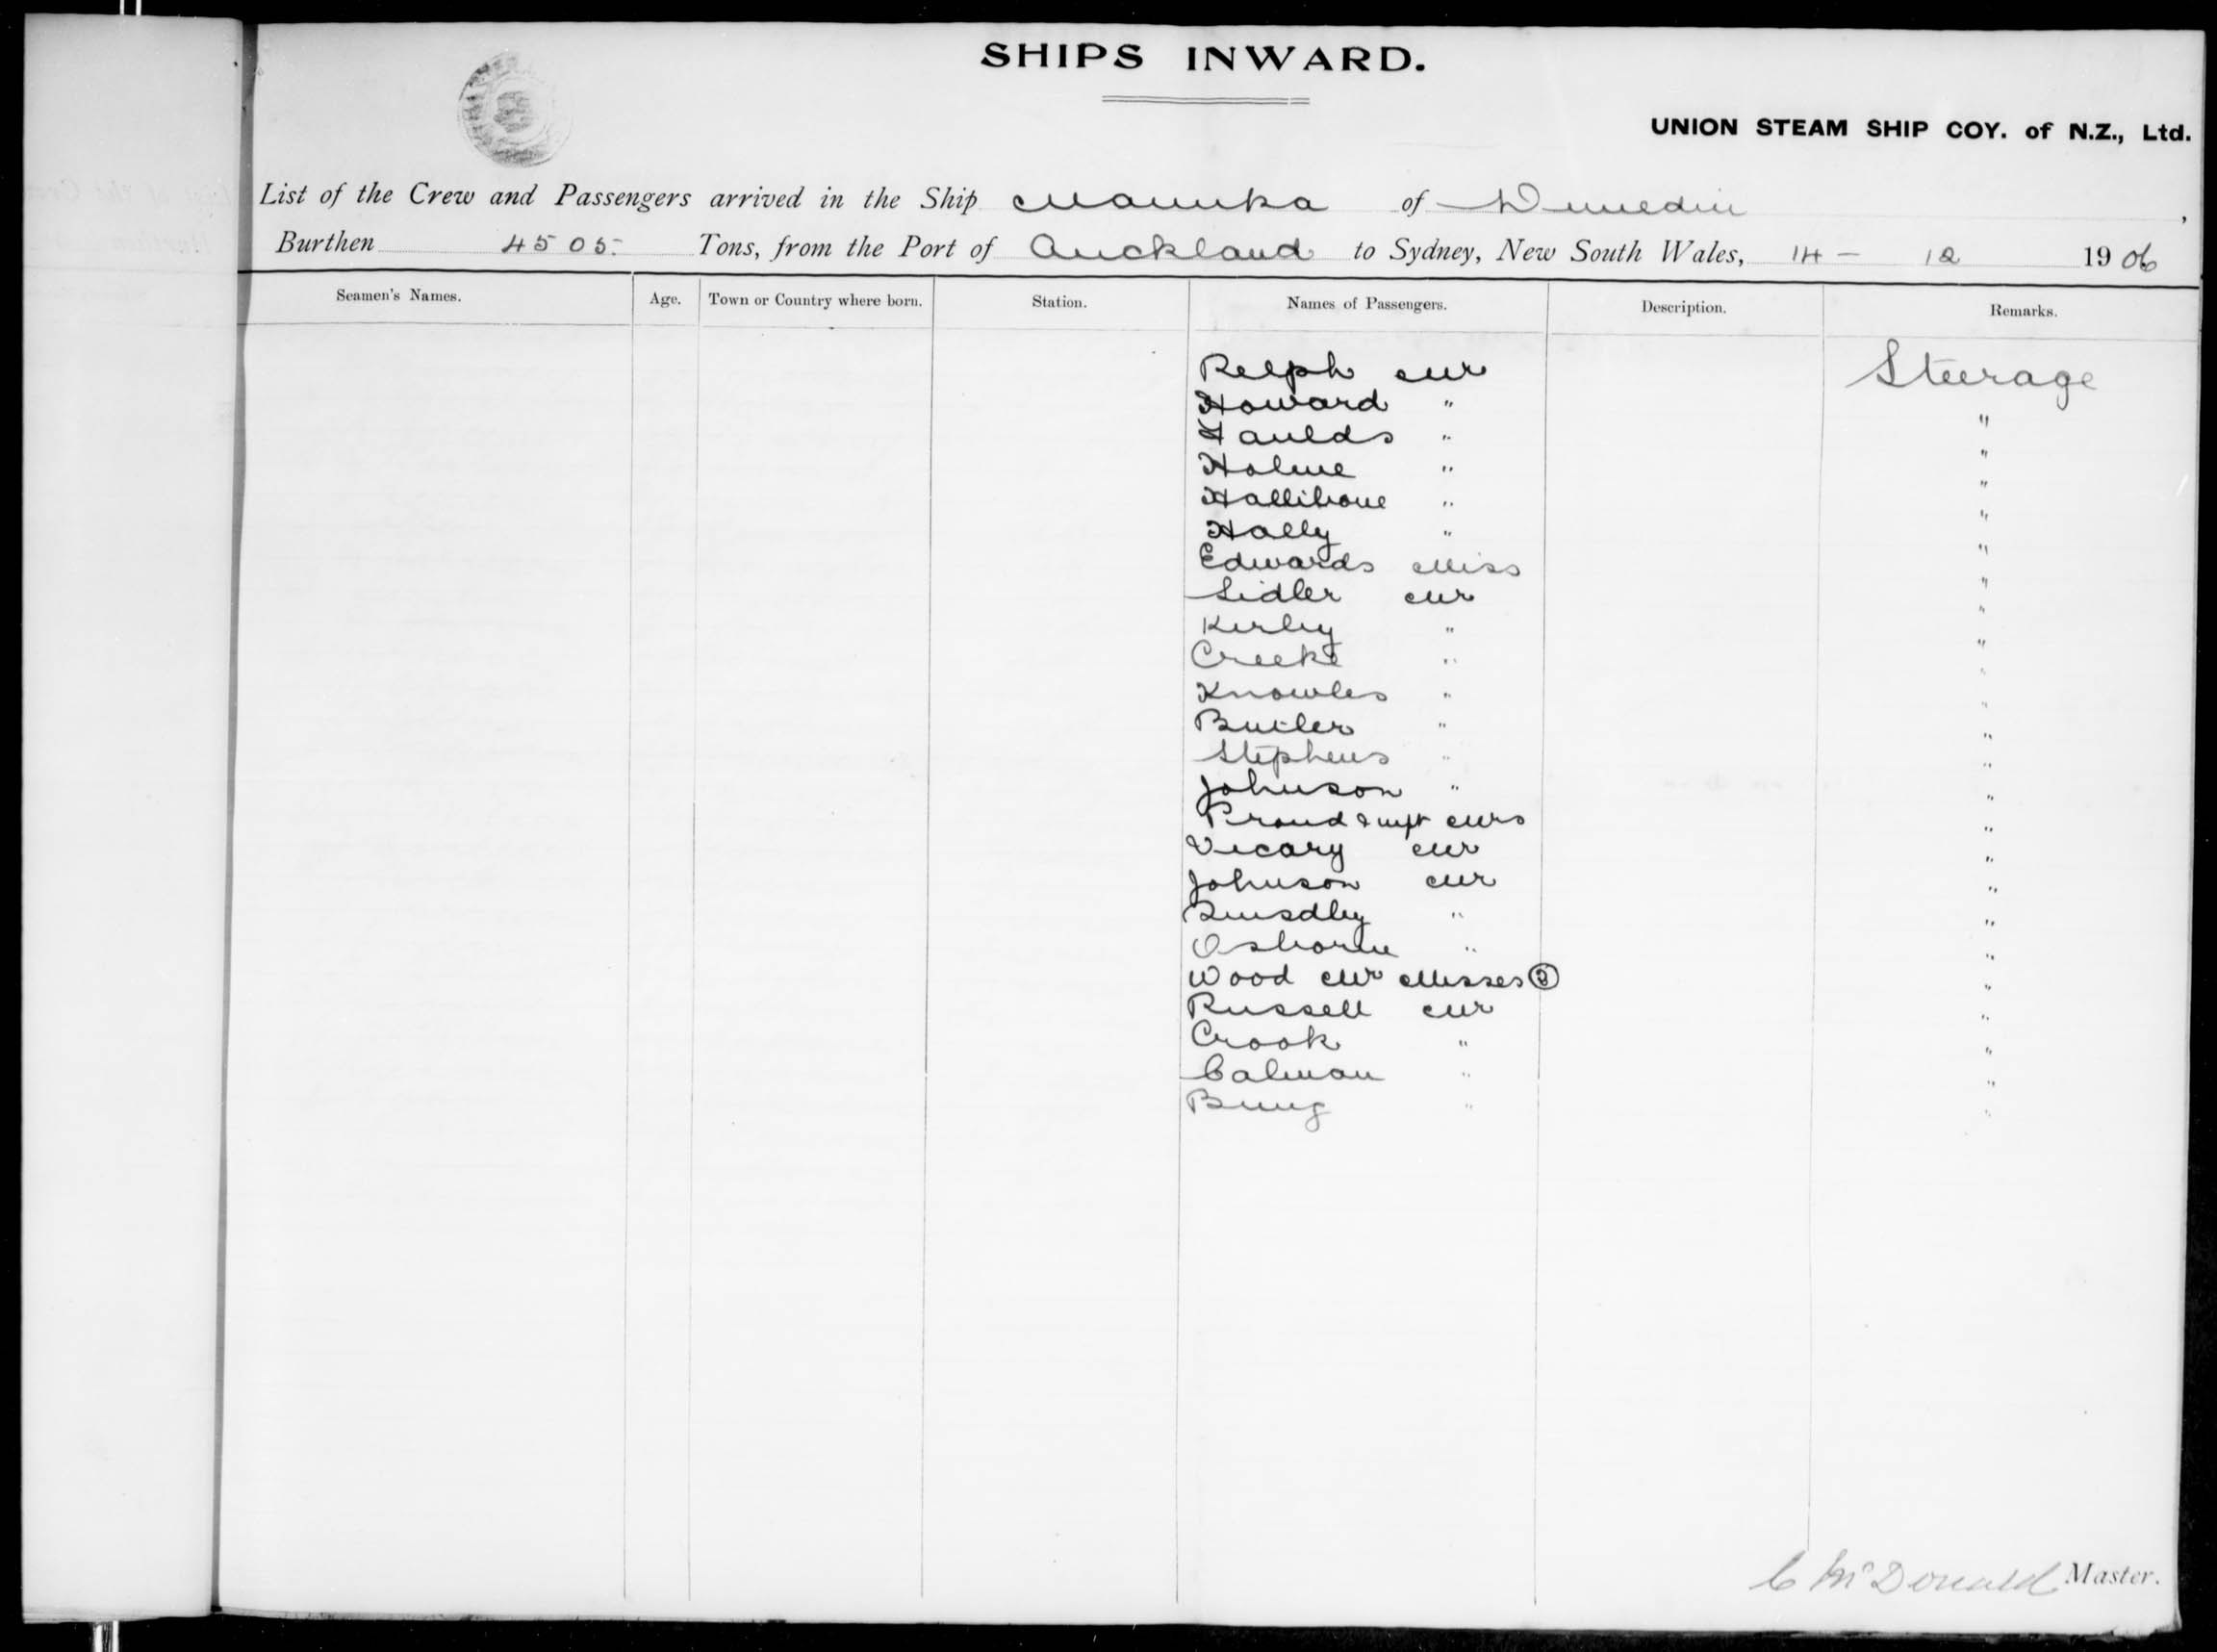 SHIPS INWARD.
UNION STEAM SHIP COY. of N.Z., Ltd.
List of the Crew and Passengers arrived in the Ship Manuka of Dunedin,
Burthen 4505 Tons, from the Port of Auckland to Sydney, New South Wales, 14 - 12 1906
Seamen's Names. Age. Town or Country where born. Station. Names of Passengers. Description. Remarks.
Relph Mr Steerage
Howard " "
Faulds " "
Holme " "
Hallibone " "
Hally " "
Edwards Miss "
Sidler Mr "
Kerley " "
Creeke " "
Knowles " "
Butler " "
Stephens " "
Johnson " "
Proud & inft Mrs "
Vicary Mr "
Johnson Mr "
" "
Osborne " "
Wood Mr Misses (2) "
Russell Mr "
Crook " "
Calman " "
Bung " "
C McDonald Master.